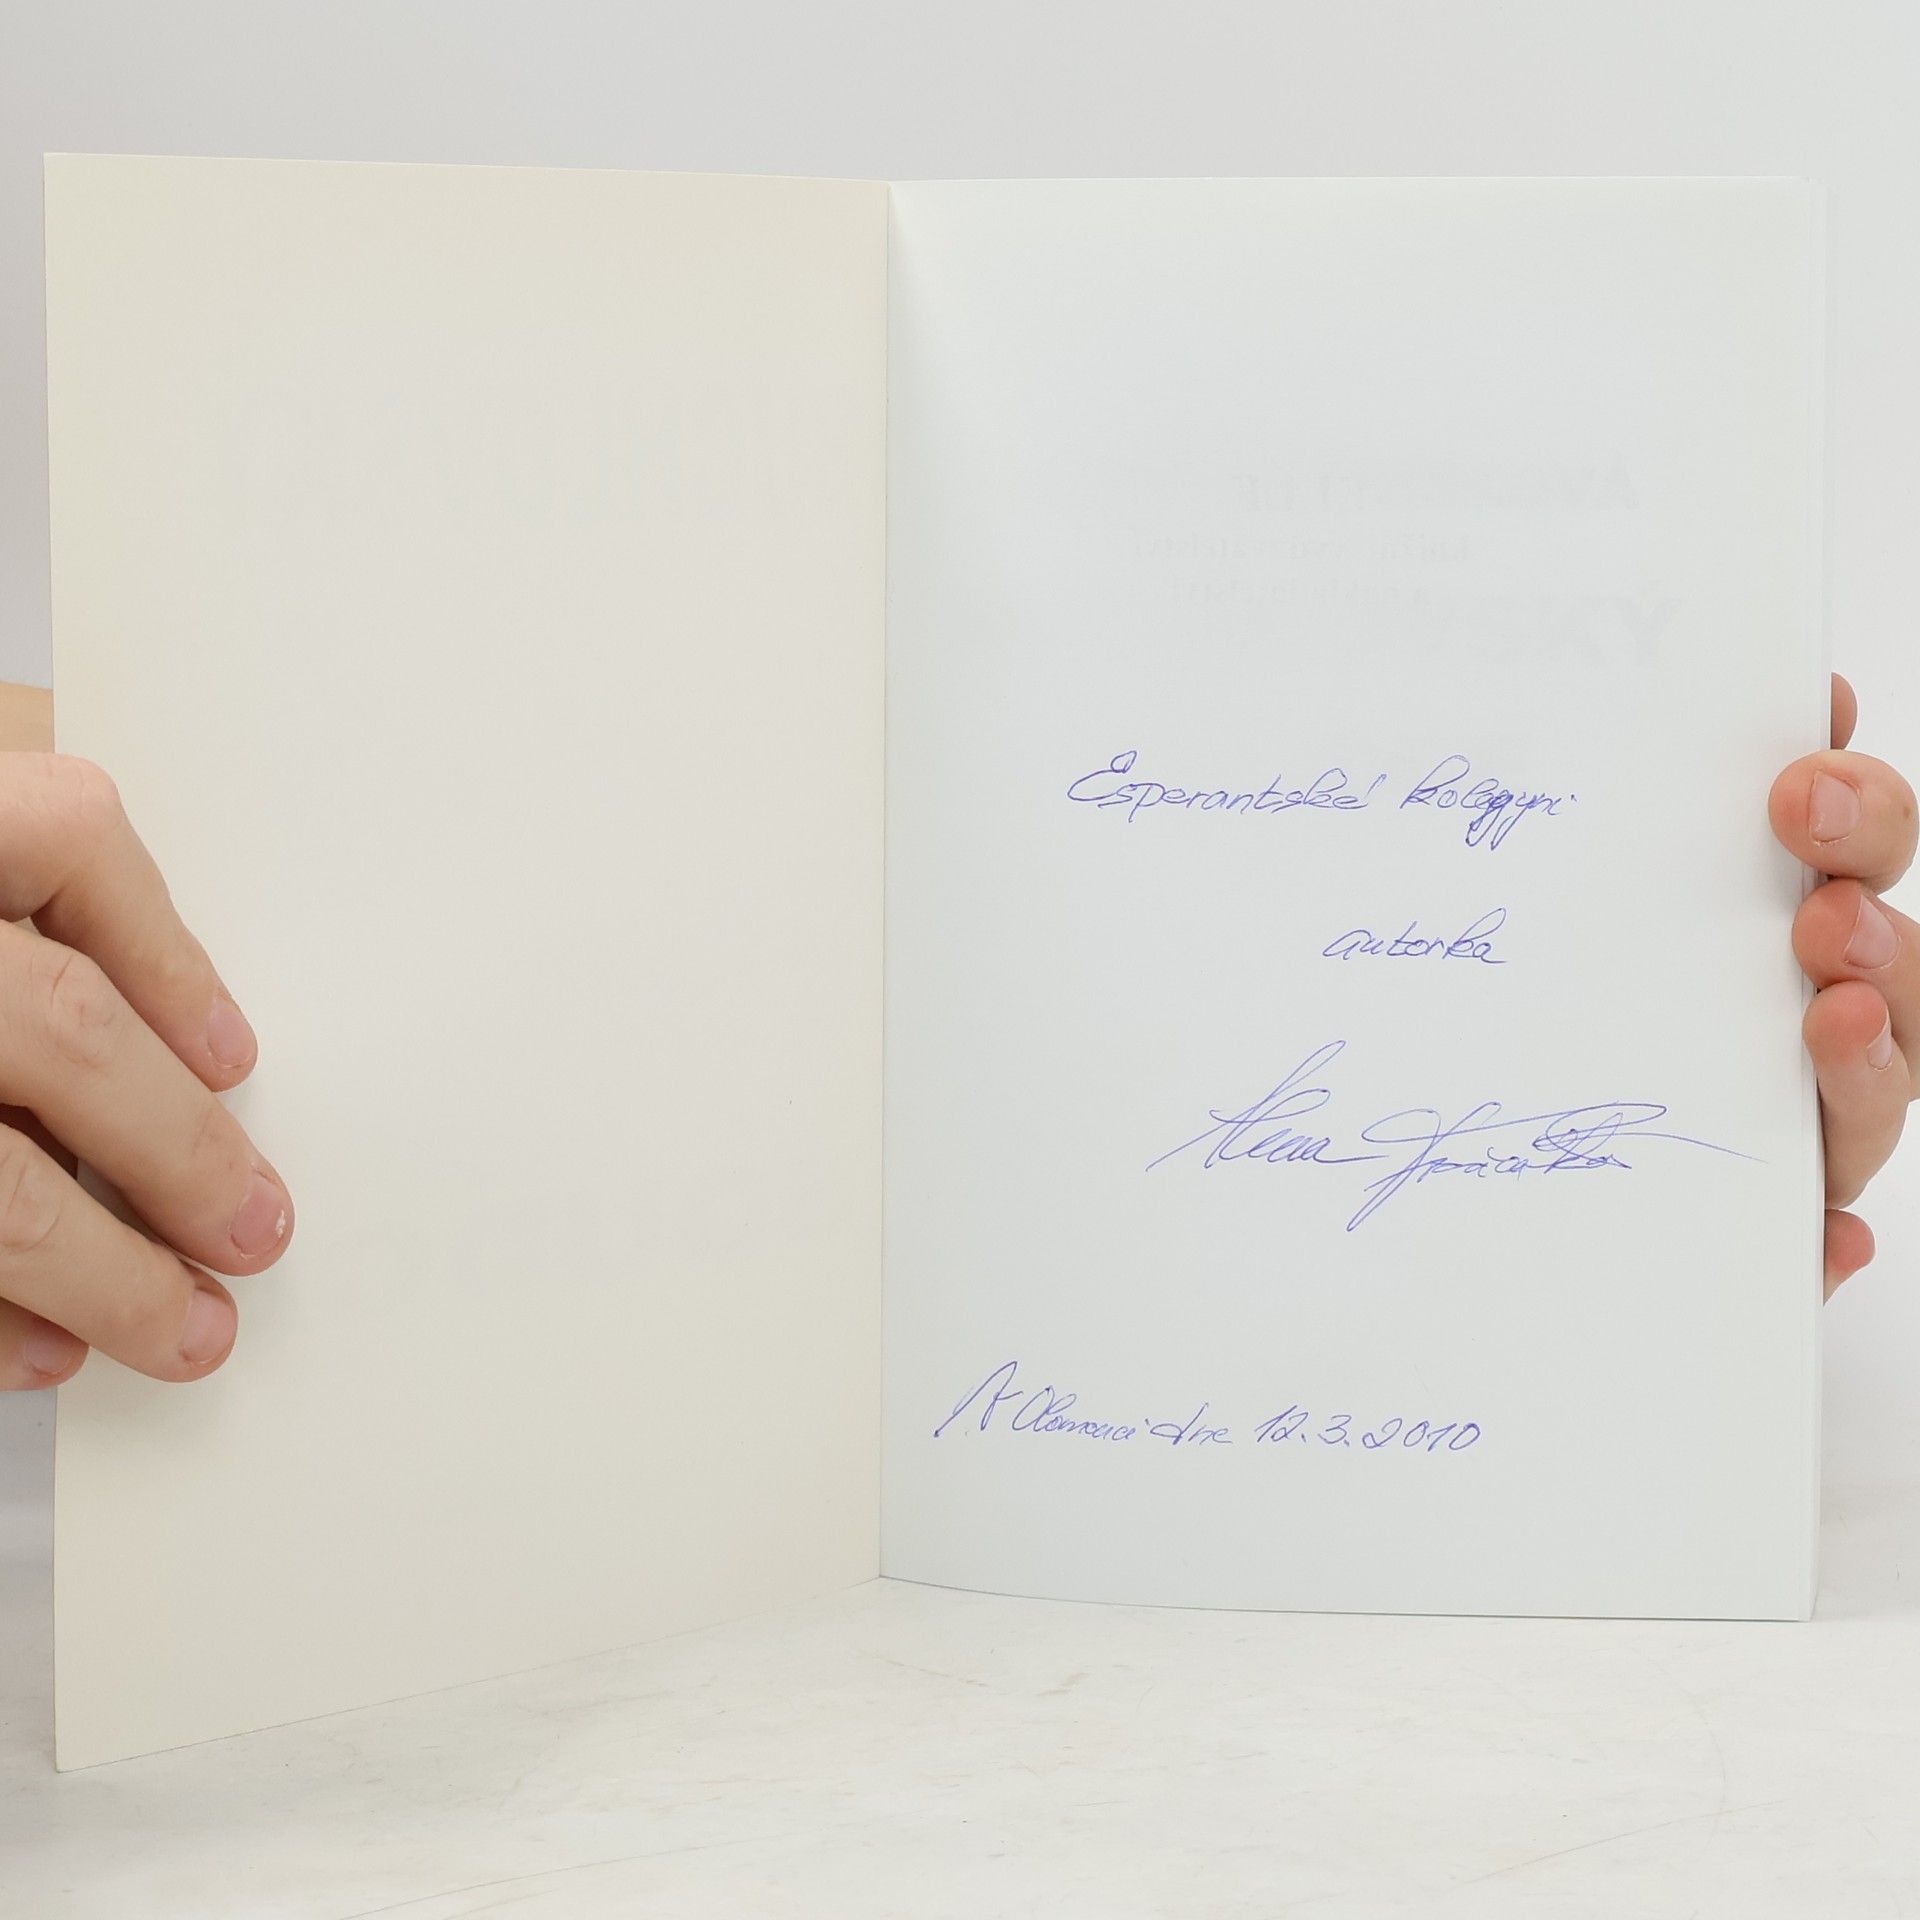 Esperantské kolegyni
autorka
Alena
V Olomouci dne 12.3.2010